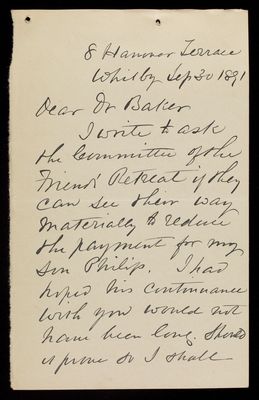 8 Hanover Terrace
Whitby Sep 30 1891
Dear Dr Baker
I write to ask
the Committee of the
Friends' Retreat if they
can see their way
materially to reduce
the payment for my
son Philip. I had
hoped his continuance
with you would not
have been long. Should
it prove so I shall